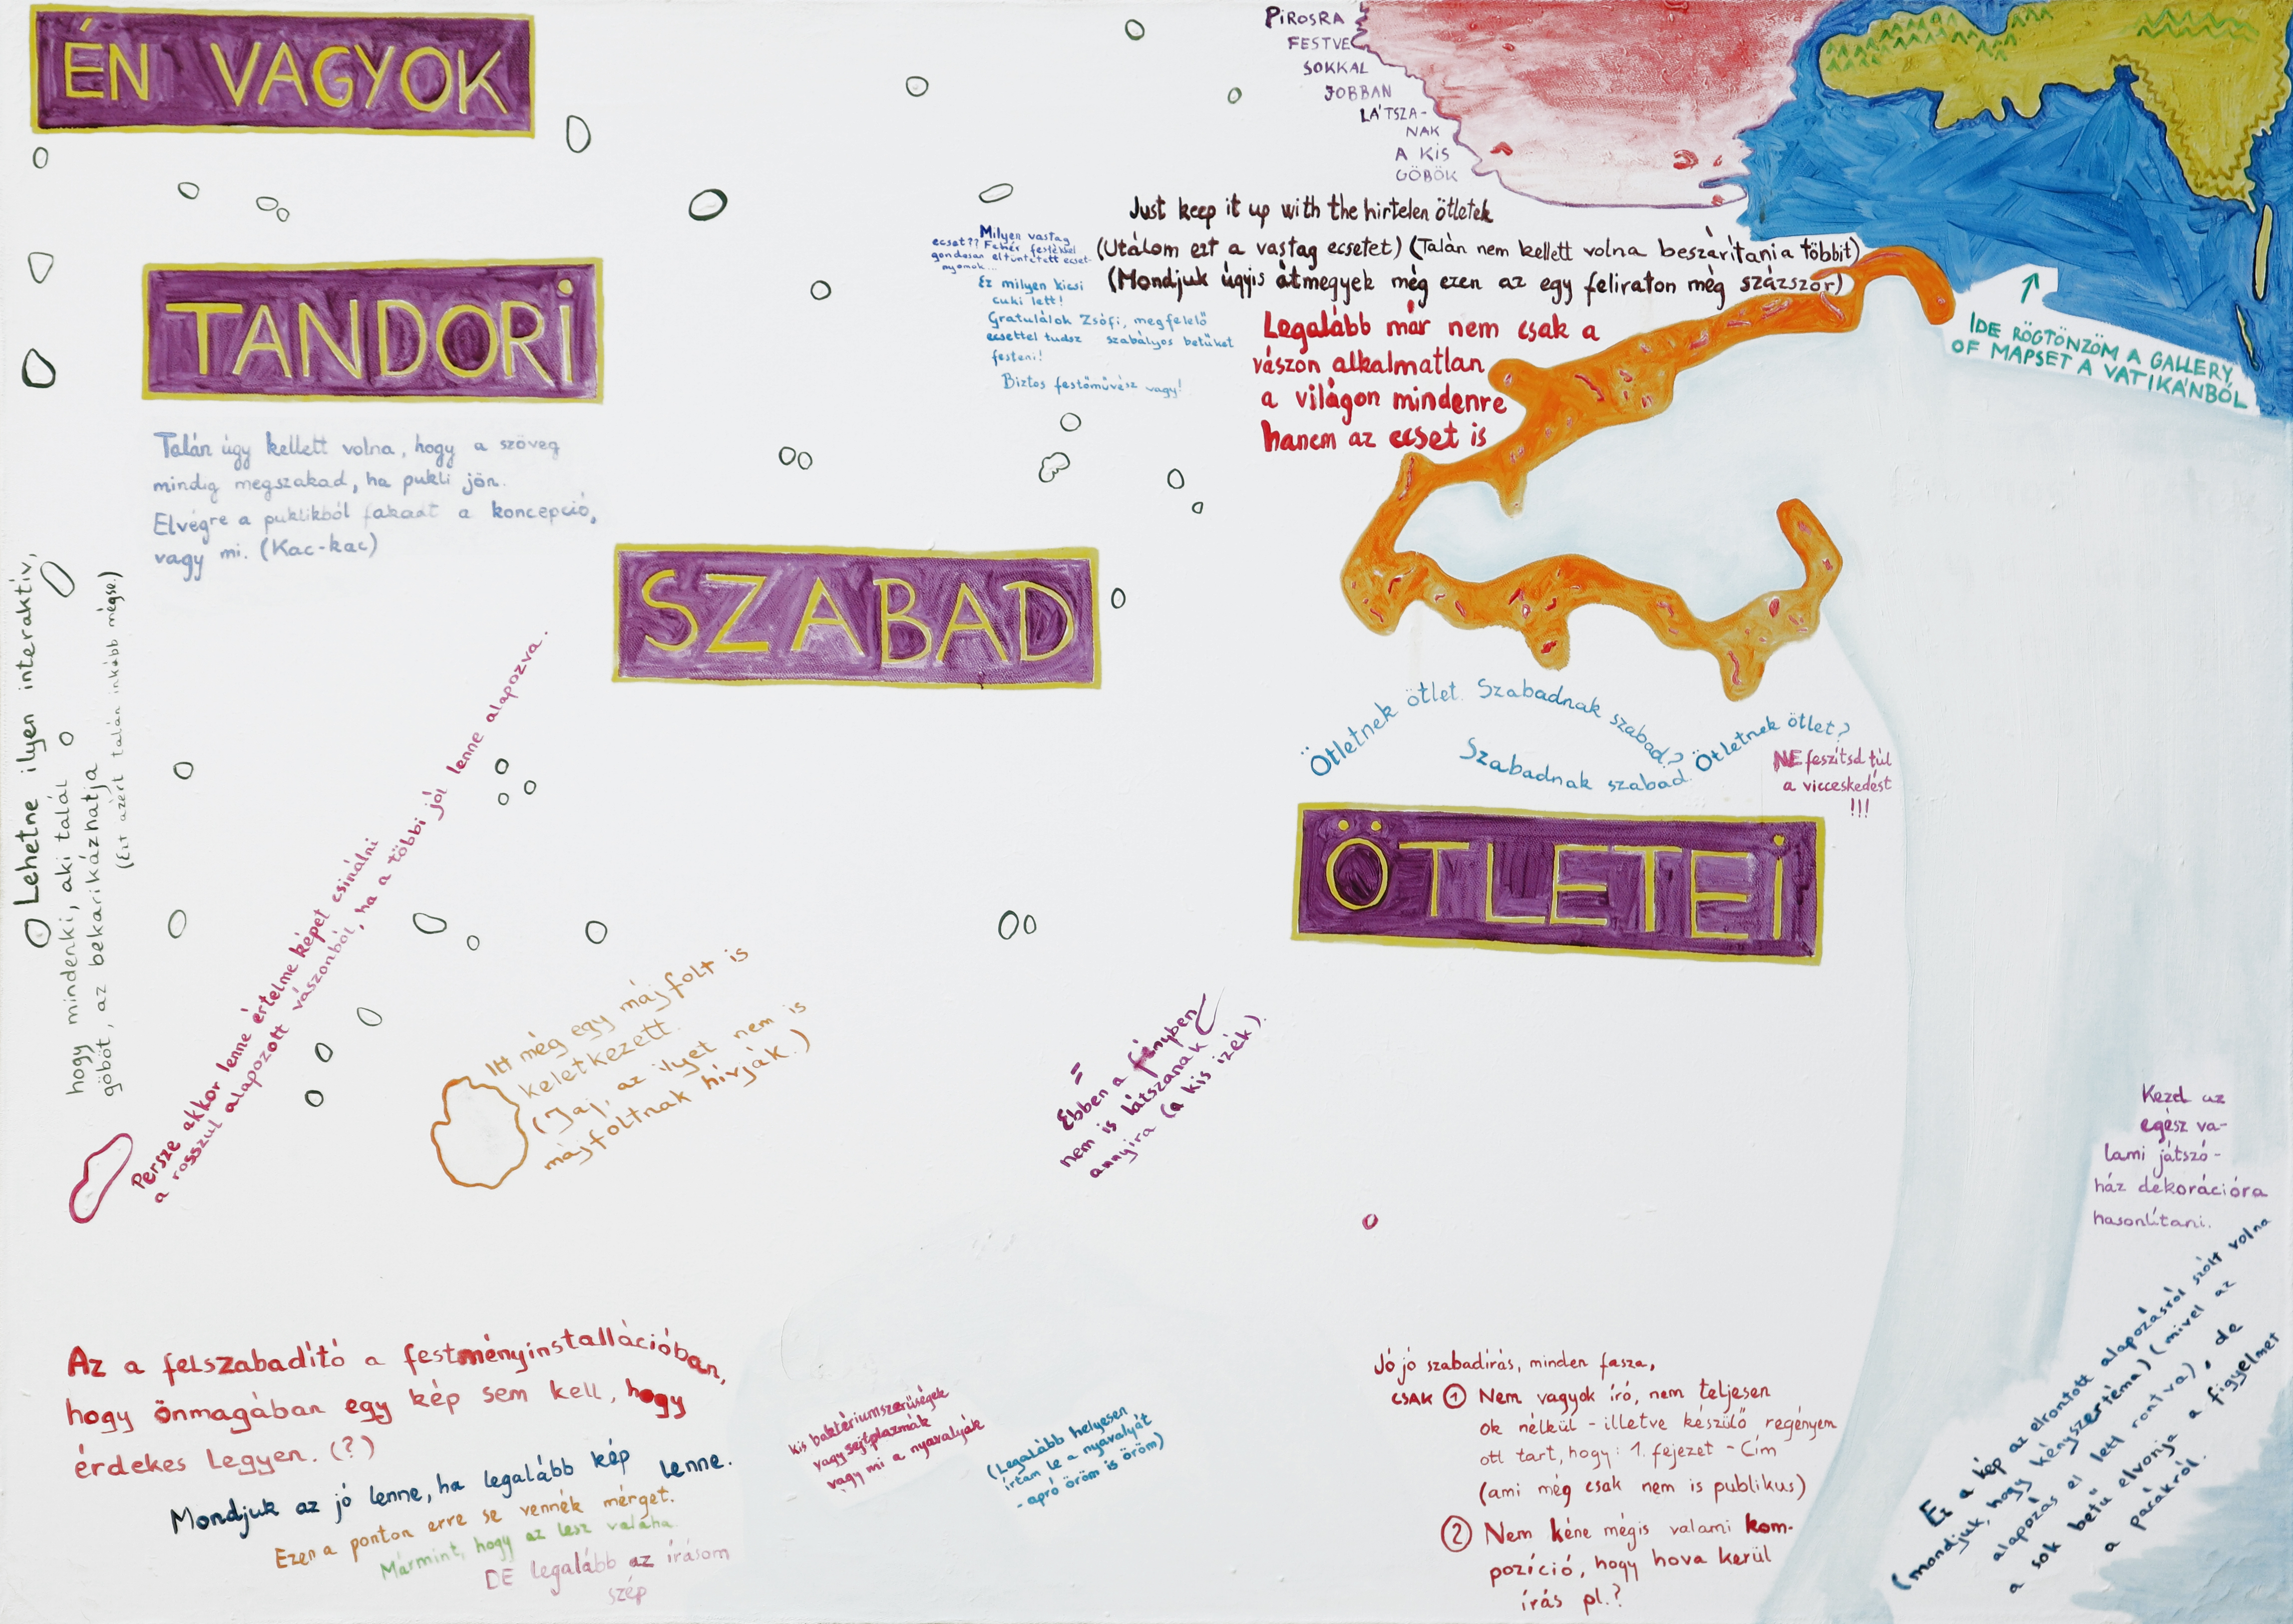 ÉN VAGYOK
TANDORI
SZABAD
ÖTLETEI
PIROSRA
FESTVE
SOKKAL
JOBBAN
LÁTSZA-
NAK
A KIS
GÖBÖK
Just keep it up with the hirtelen ötletek
(Utálom ezt a vastag ecsetet) (Talán nem kellett volna beszárítania többit)
(Mondjuk úgyis átmegyek még ezen az egy feliraton még százszor)
Milyen vastag
ecset?? Fehér festékkel
gondosan eltüntetett ecset-
nyomok...
Ez milyen kicsi
cuki lett!
Gratulálok Zsófi, megfelelő
ecsettel tudsz szabályos betűket
festeni!
Biztos festőművész vagy!
Legalább már nem csak a
vászon alkalmatlan
a világon mindenre
hanem az ecset is
IDE RÖGTÖNZÖM A GALLERY
OF MAPSET A VATIKÁNBÓL
Talán úgy kellett volna, hogy a szöveg
mindig megszakad, ha pukli jön.
Elvégre a puklikból fakadt a koncepció,
vagy mi. (Kac-kac)
Lehetne ilyen interaktív,
hogy mindenki, aki talál
göböt, az bekarikázhatja
(Ezt azért talán inkább mégse.)
Persze akkor lenne értelme képet csinálni
a rosszul alapozott vászonból, ha a többi jól lenne alapozva.
Ötletnek ötlet. Szabadnak szabad? Ötletnek ötlet?
Szabadnak szabad.
NE feszítsd túl
a viccesekedést
!!!
Itt még egy májfolt is
keletkezett.
(Jaj, az ilyet nem is
májfoltnak hívják.)
Ebben a fényben
nem is látszanak
annyira (a kis izék).
Kezd az
egész va-
lami játszó-
ház dekorációra
hasonlítani.
Ez a kép az elrontott alapozásról szólt volna
(mondjuk, hogy kényszertéma) (mivel az
alapozás el lett rontva), de
a sok betű elvonja a figyelmet
a pacákról.
Az a felszabadító a festményinstallációban,
hogy önmagában egy kép sem kell, hogy
érdekes legyen. (?)
Mondjuk az jó lenne, ha legalább kép lenne.
Ezen a ponton erre se vennék mérget.
Mármint, hogy az lesz valaha.
DE legalább az írásom
szép
kis baktériumszerűségek
vagy sejtplazmák
vagy mi a nyavalyák
(Legalább helyesen
írtam le a nyavalyát
- apró öröm is öröm)
Jó jó szabadírás, minden fasza,
CSAK ① Nem vagyok író, nem teljesen
ok nélkül - illetve készülő regényem
ott tart, hogy: 1. fejezet - Cím
(ami még csak nem is publikus)
② Nem kéne mégis valami kom-
pozíció, hogy hova kerül
írás pl.?